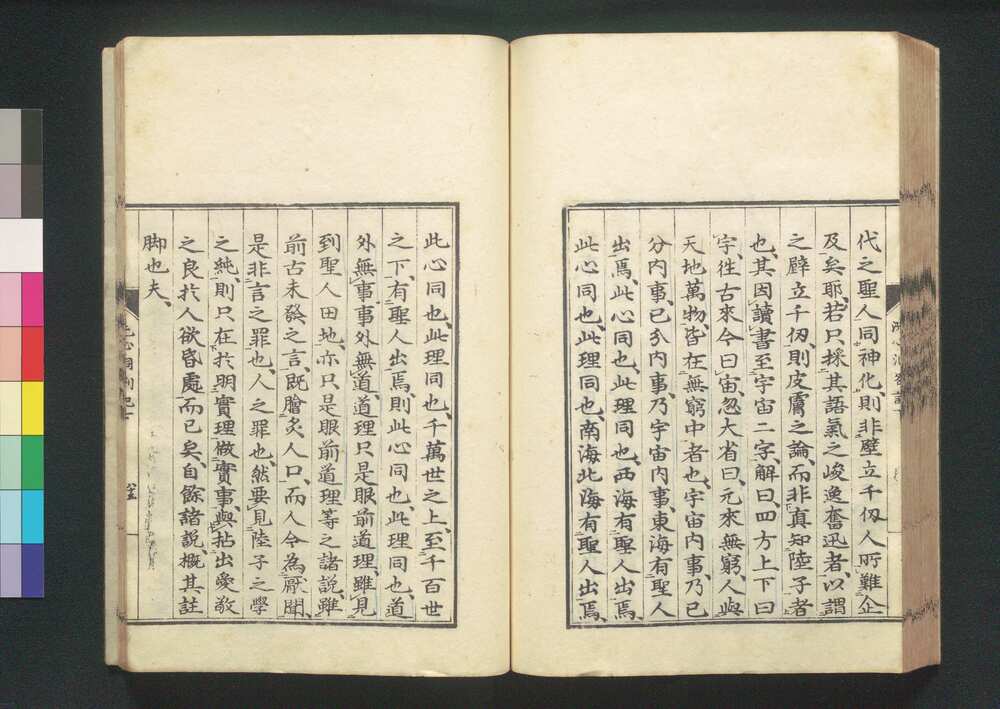 代之聖人同神化則非壁立千仭人所難企
及矣耶、若只採其語氣之峻逸奮迅者、以謂
之壁立千仭、則皮膚之論、而非真知陸子者
也、其因讀書至宇宙二字、解曰、四方上下曰
宇、徃古來今曰宙、忽大省曰、元來無窮、人與
天地萬物、皆在無窮中者也、宇宙內事、乃己
分內事、己分內事、乃宇宙內事、東海有聖人
出焉、此心同也、此理同也、西海有聖人出焉、
此心同也、此理同也、南海北海有聖人出焉、
此心同也、此理同也、千萬世之上、至千百世
之下、有聖人出焉、則此心同也、此理同也、道
外無事、事外無道、道理只是眼前道理、雖見
到聖人田地、亦只是眼前道理等之諸說、雖
前古未發之言、既膾炙人口、而人今為厭聞、
是非言之罪也、人之罪也、然要見陸子之學
之純、則只在於明實理做實事、與拈出愛敬
之良於人欲昏處而已矣、自餘諸說、概其註
脚也夫、